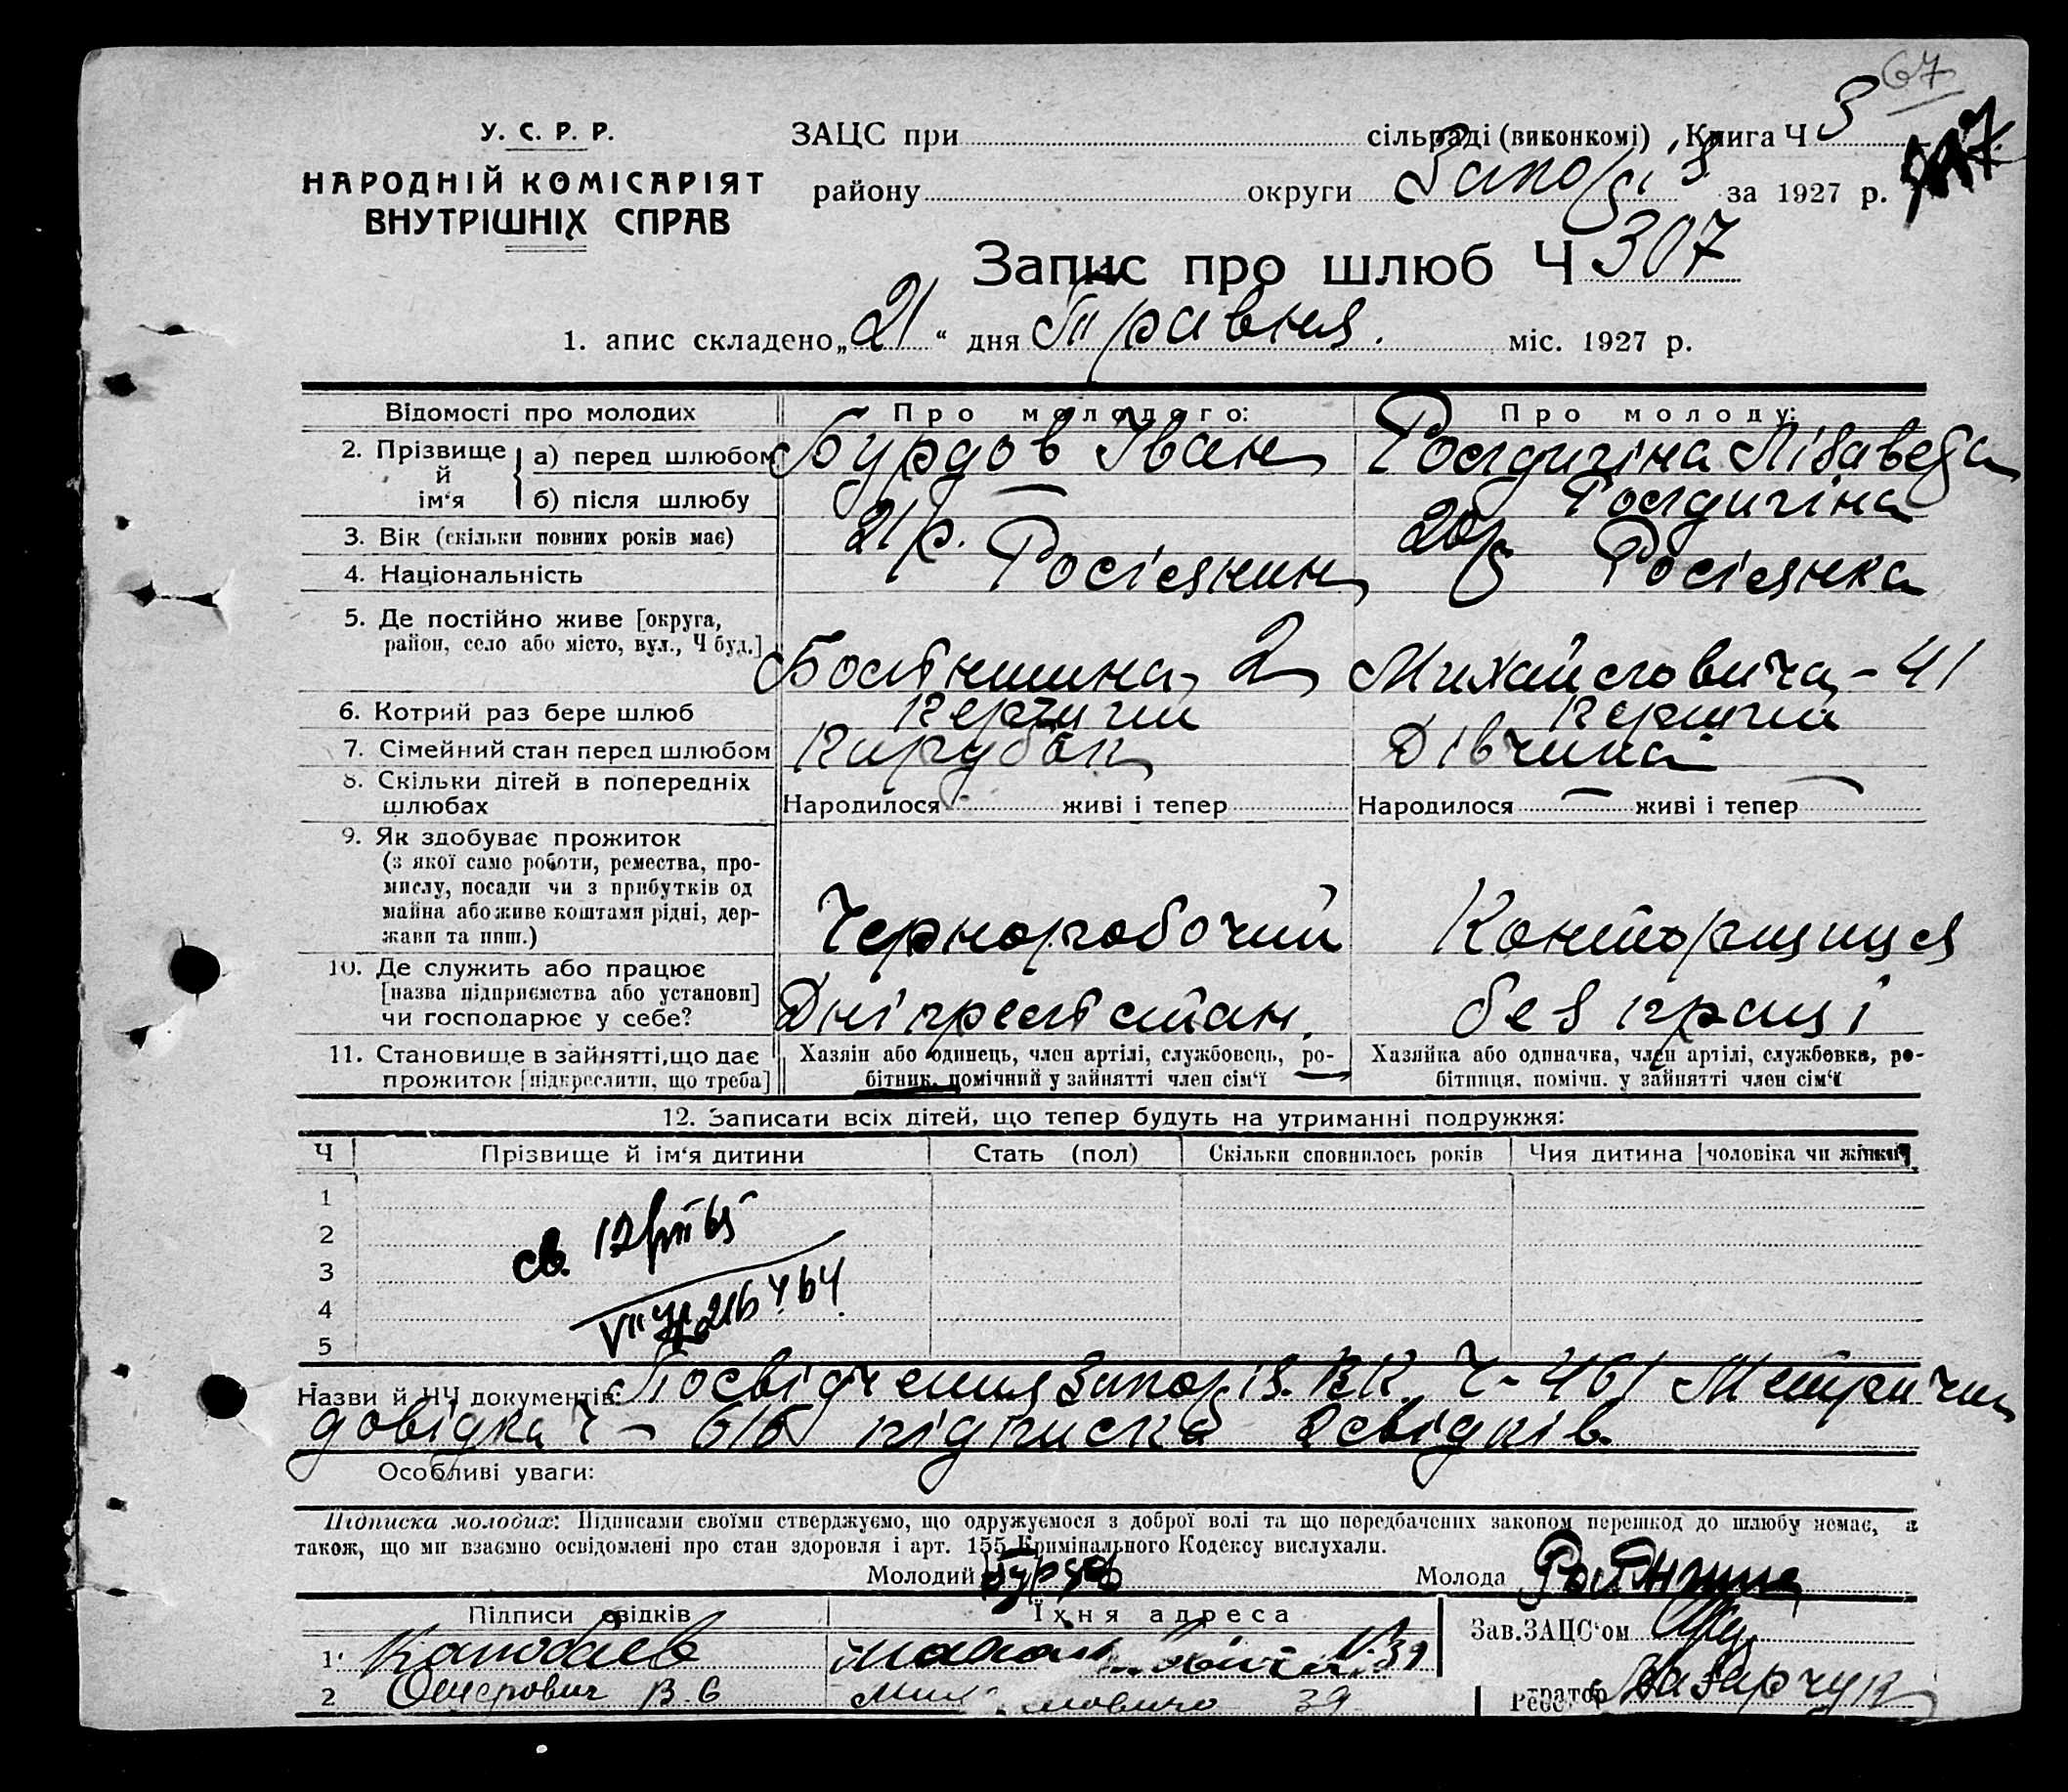 67
У. С. Р. Р.
НАРОДНІЙ КОМІСАРІЯТ
ВНУТРІШНІХ СПРАВ
ЗАЦС при сільраді (виконкомі), Книга Ч 3
району округи Запоріз за 1927 р.
Запис про шлюб Ч 307
1. апис складено „21“ дня Травня. міс. 1927 р.
Відомості про молодих Про молодого: Про молоду:
2. Прізвище й ім‘я а) перед шлюбом Бурдов Іван Лізавета
б) після шлюбу —
3. Вік (скільки повних років має) 21 р. 20 р
4. Національність Росіянин Росіянка
5. Де постійно живе [округа,
район, село або місто, вул., Ч буд.] 2 Михайловича - 41
6. Котрий раз бере шлюб перший перший
7. Сімейний стан перед шлюбом Парубок Дівчина
8. Скільки дітей в попередніх
шлюбах Народилося живі і тепер Народилося — живі і тепер —
9. Як здобуває прожиток
(з якої само роботи, ремества, про-
мислу, посади чи з прибутків од
майна або живе коштами рідні, дер-
жави та инш.) Чернорабочий Конторщиця
10. Де служить або працює
[назва підприємства або установи]
чи господарює у себе? без праці
11. Становище в зайнятті, що дає
прожиток [підкреслити, що треба]
Хазяїн або одинець, член артілі, службовець, ро-
бітник, помічний у зайнятті член сім‘ї
Хазяйка або одиначка, член артілі, службовка, ро-
бітниця, помічн. у зайнятті член сім‘ї
12. Записати всіх дітей, що тепер будуть на утриманні подружжя:
Ч Прізвище й ім‘я дитини Стать (пол) Скільки сповнилось років Чия дитина [чоловіка чи жінки]
1
2
3
4
5
Назви й ЧЧ документів: Посвідчення Запоріз. ВК. Ч - 461 Метрична
довідка Ч - 616 підписка 2 свідків.
Особливі уваги:
Підписка молодих: Підписами своїми стверджуємо, що одружуємося з доброї волі та що передбачених законом перешкод до шлюбу немає, а
також, що ми взаємно освідомлені про стан здоровля і арт. 155 Кримінального Кодексу вислухали.
Молодий Бурдов Молода
Підписи свідків Їхня адреса Зав. ЗАЦС‘ом
1 39
2 Ошерович В. 39
Реєстратор Назарчук